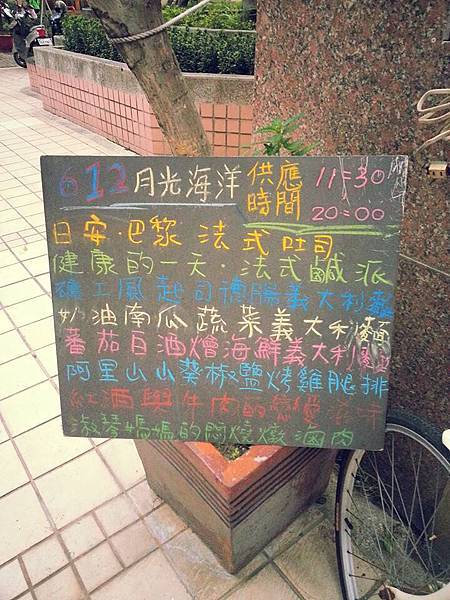 612月光海洋 供應時間 11:30 20:00
日安·巴黎 法式吐司
健康的一天·法式鹹派
礦工風起司德腸義大利麵
奶油南瓜蔬菜義大利麵
蕃茄白酒燴海鮮義大利麵
阿里山山葵椒鹽烤雞腿排
紅酒與牛肉的戀愛
淑琴媽媽的悶燒燉滷肉